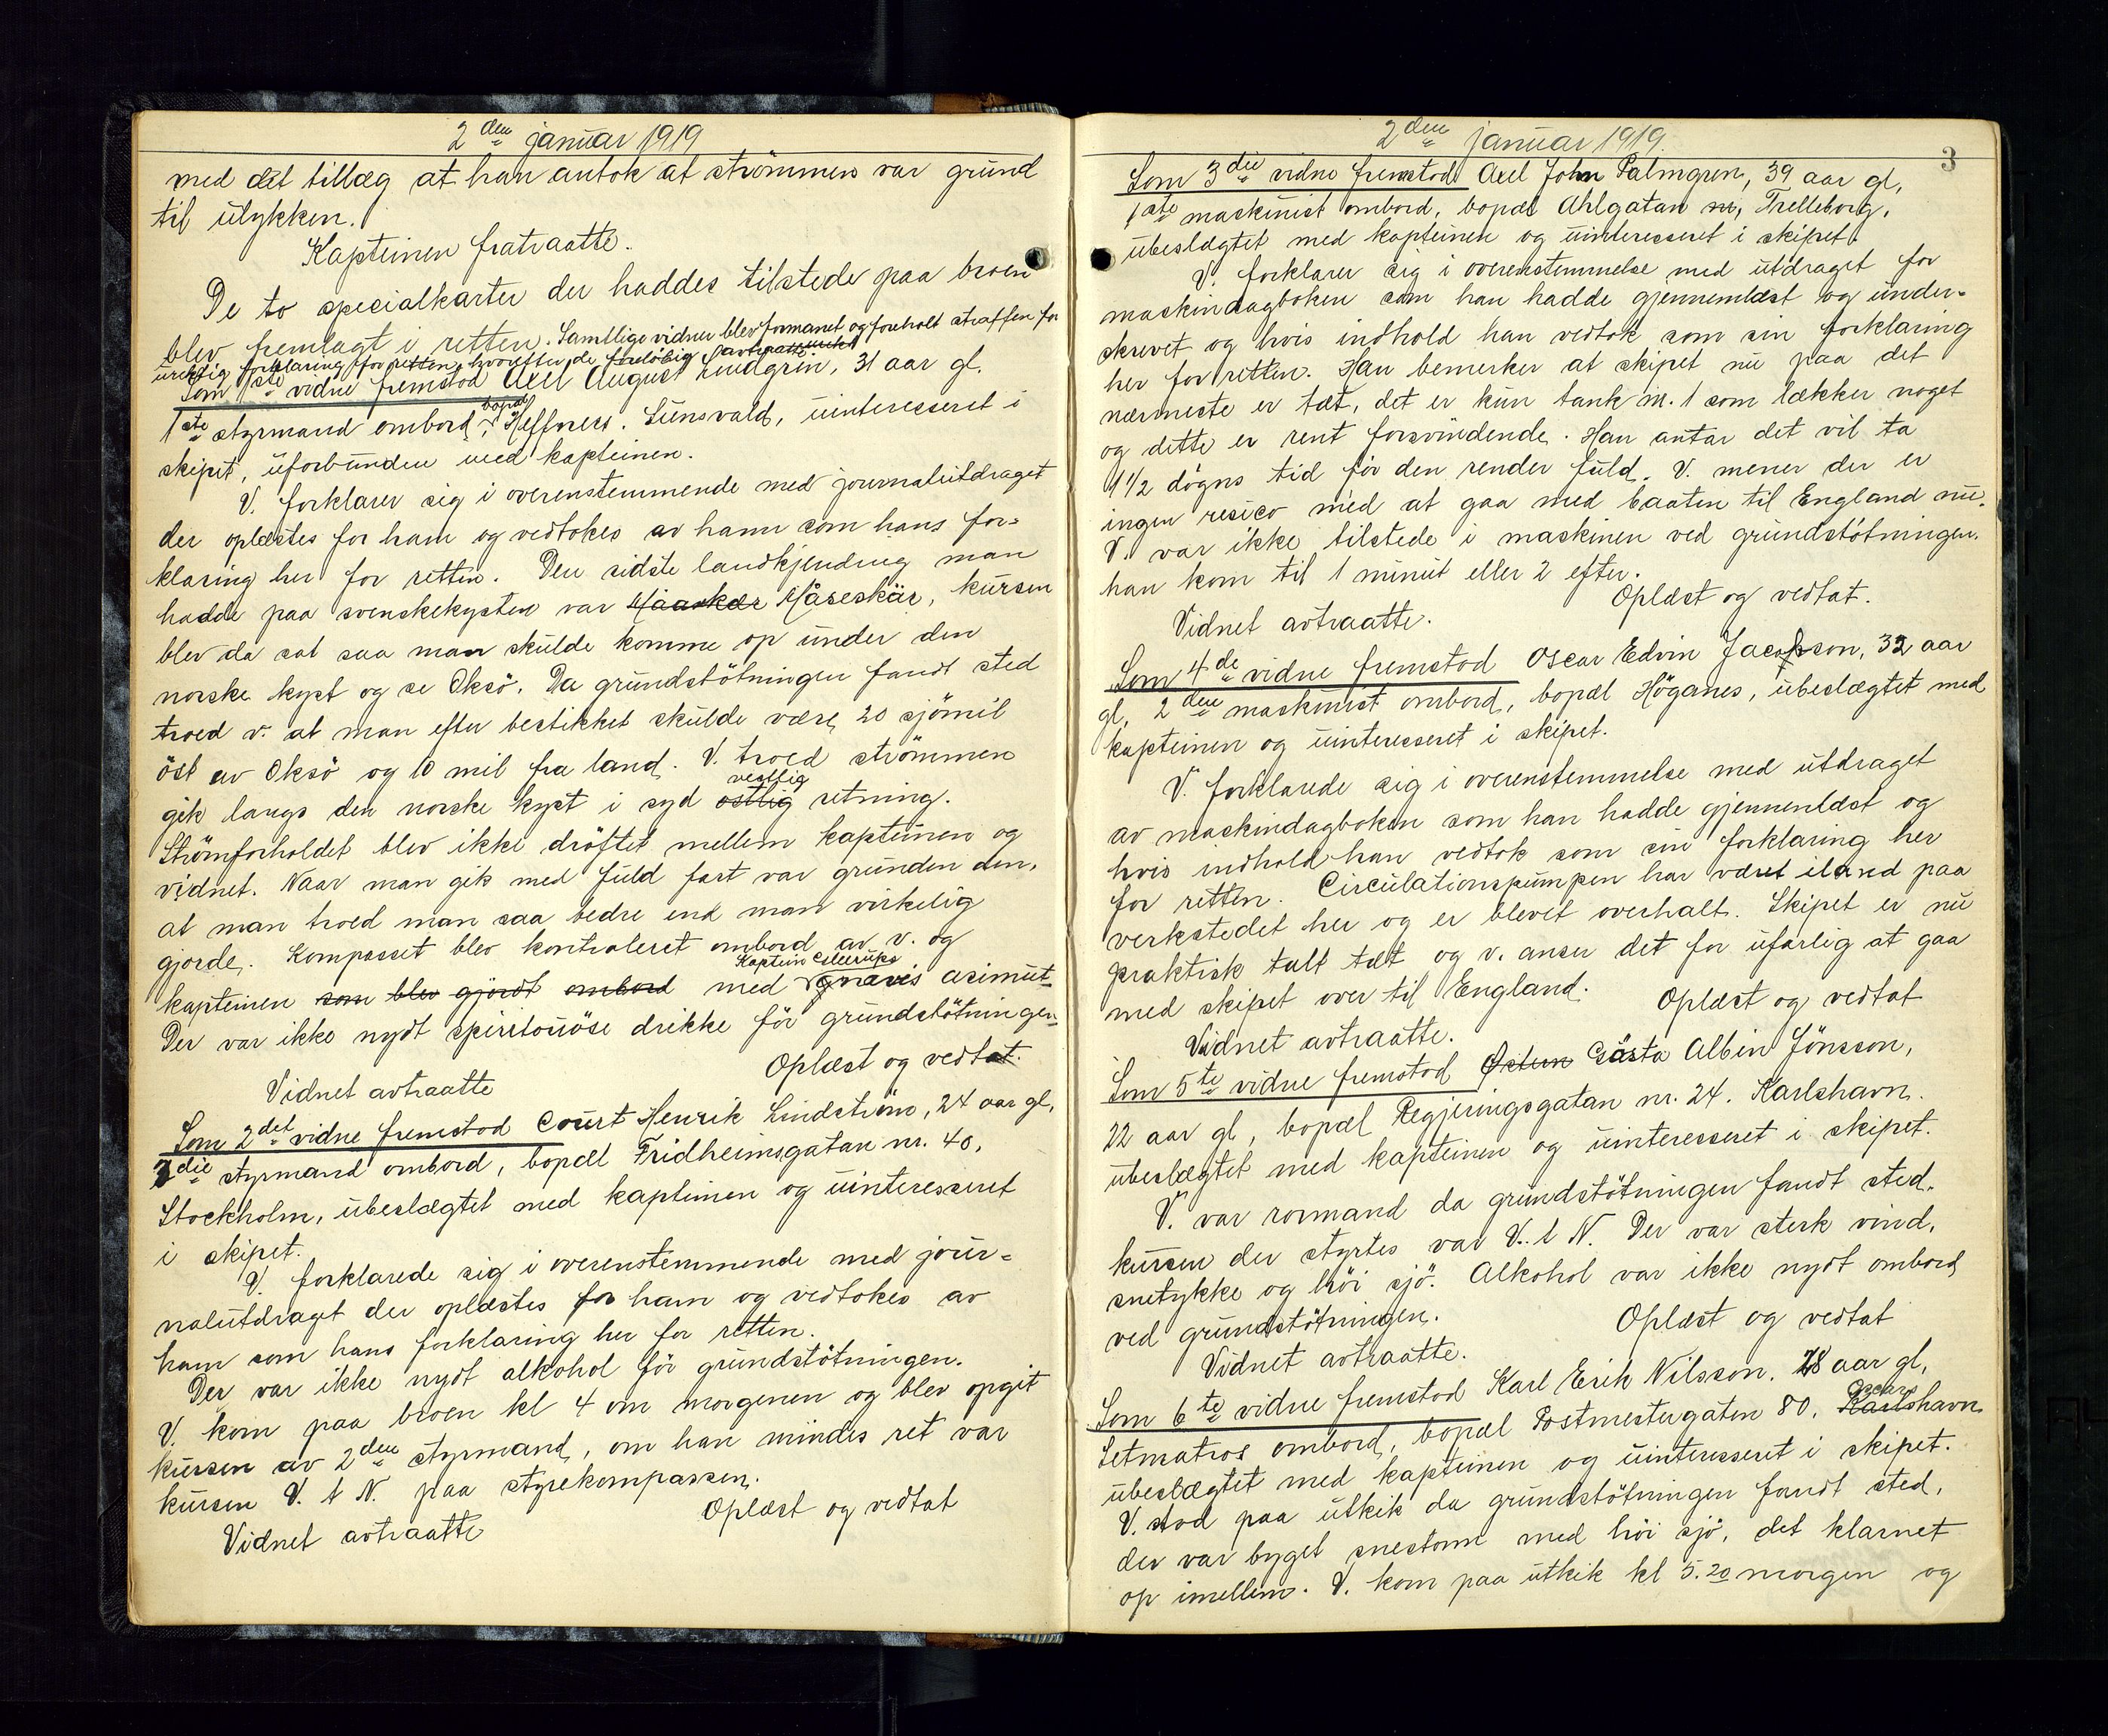 2den januar 1919
med det tillæg at han antok at strömmen var grund
til ulykken.
Kapteinen fratraatte.
De to specialkarter der haddes tilstede paa broen
blev fremlagt i retten. Samtlige vidner blev formanet og foreholt straffen for
urektig forklaring for retten, hvorefter de foreløbig avtraatte
Som 1ste vidne fremstod Axel August Lindgrin, 31 aar gl.
1ste styrmand ombord, bopæl Heffners. Sunsvald, uinteresseret i
skipet, uforbunden med kapteinen.
V. forklarer sig i overenstemmende med journalutdraget
der oplæstes for ham og vedtokes av hann som hans for-
klaring her for retten. Den sidste landkjending man
hadde paa svenskekysten var Måaskær Måseskär, kursen
blev da sat saa man skulde komme op under den
norske kyst og se Oksö. Da grundstötningen fandt sted
troed v. at man efter bestikket skulde være 20 sjömil
öst av Oksö og 10 mil fra land. V. troed strömmen
gik langs den norske kyst i syd östlig vestlig retning.
Strömforholdet blev ikke dröftet mellem kapteinen og
vidnet. Naar man gik med fuld fart var grunden den,
at man troed man saa bedre end man virkelig
gjorde. Kompasset blev kontroleret ombord av v. og
kapteinen som blev gjordt ombord med Kaptein asimut.
Der var ikke nydt spirituöse drikke för grundstötningen.
Oplæst og vedtat.
Vidnet avtraatte
Som 2det vidne fremstod Court Henrik Lindström, 24 aar gl,
3die styrmand ombord, bopæl Fridheimsgatan nr. 40,
Stockholm, ubeslægtet med kapteinen og uinteresseret
i skipet.
V. forklarede sig i overenstemmende med jour-
nalutdraget der oplæstes for ham og vedtokes av
ham som hans forklaring her for retten.
Der var ikke nydt alkohol för grundstötningen.
V. kom paa broen kl 4 om morgenen og blev opgit
kursen av 2den styrmand, om han mindes ret var
kursen V. t N. paa styrekompassen.
Oplæst og vedtat
Vidnet avtraatte
2den januar 1919.
3
Som 3die vidne fremstod Axel John Palmgren, 39 aar gl,
1ste maskinist ombord, bopæl Ahlgatan nr, Trelleborg,
ubeslægtet med kapteinen og uinteresseret i skipet.
V. forklarer sig i overenstemmelse med utdraget for
maskindagboken som han hadde gjennemlæst og under-
skrevet og hvis indhold han vedtok som sin forklaring
her for retten. Han bemerker at skipet nu paa det
nærmeste er tæt, det er kun tank nr. 1 som lækker noget
og dette er rent forsvindende. Han antar det vil ta
1 1/2 dögns tid för den render fuld. V. mener der er
ingen resico med at gaa med baaten til England nu.
V. var ikke tilstede i maskinen ved grundstötningen.
han kom til 1 minut eller 2 efter.
Oplæst og vedtat.
Vidnet avtraatte.
Som 4de vidne fremstod Oscar Edvin Jacobsson, 32 aar
gl, 2den maskinist ombord, bopæl Höganes, ubeslægtet med
kapteinen og uinteresseret i skipet.
V. forklarede sig i overenstemmelse med utdraget
av maskindagboken som han hadde gjennemlæst og
hvis indhold han vedtok som sin forklaring her
for retten. Circulationspumpen har været iland paa
verkstedet her og er blevet overhalt. Skipet er nu
praktisk talt tæt og v. anser det for ufarlig at gaa
med skipet over til England.
Oplæst og vedtat
Vidnet avtraatte.
Som 5te vidne fremstod Östen Gösta Albin Jönsson,
22 aar gl, bopæl Regjeringsgatan nr. 24. Karlshavn.
ubeslægtet med kapteinen og uinteresseret i skipet.
V. var rormand da grundstötningen fandt sted.
kursen der styrtes var V. t N. Der var sterk vind,
snetykke og höi sjö. Alkohol var ikke nydt ombord
ved grundstötningen.
Oplæst og vedtat
Vidnet avtraatte.
Som 6te vidne fremstod Karl Erik Nilsson, 28 aar gl,
Letmatros ombord, bopæl Postmestergaten 80, Karls Oscarshavn
ubeslægtet med kapteinen og uinteresseret i skipet.
V. stod paa utkik da grundstötningen fandt sted,
der var byget snestorm med höi sjö, det klarnet
op imellem. V. kom paa utkik kl 5.20 morgen og